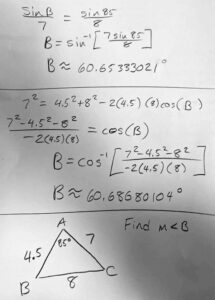 sin B / 7 = sin 85 / 8
B = sin⁻¹ [ 7 sin 85 / 8 ]
B ≈ 60.65333021°
7² = 4.5² + 8² - 2(4.5)(8) cos(B)
7² - 4.5² - 8² / -2(4.5)(8) = cos(B)
B = cos⁻¹ [ 7² - 4.5² - 8² / -2(4.5)(8) ]
B ≈ 60.68680104°
Find m<B
A
85°
4.5
7
B
8
C